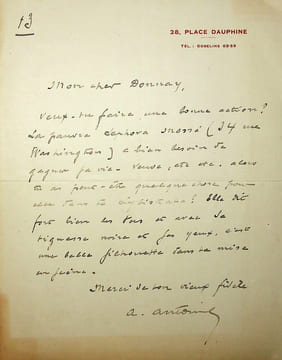 13
28, PLACE DAUPHINE
TÉL : GOBELINS 02-59
Mon cher Donnay,
Veux-tu faire une bonne action ?
La pauvre Mossé (14 rue
Washington) a bien besoin de
gagner sa vie - veuve, etc etc, alors
tu as peut-être quelque chose pour
elle dans ta ? Elle dit
fort bien les vers et avec sa
tignasse noire et ses yeux, c'est
une belle dans ta mise
en scène.
Merci de ton vieux fidèle
A. Antoine